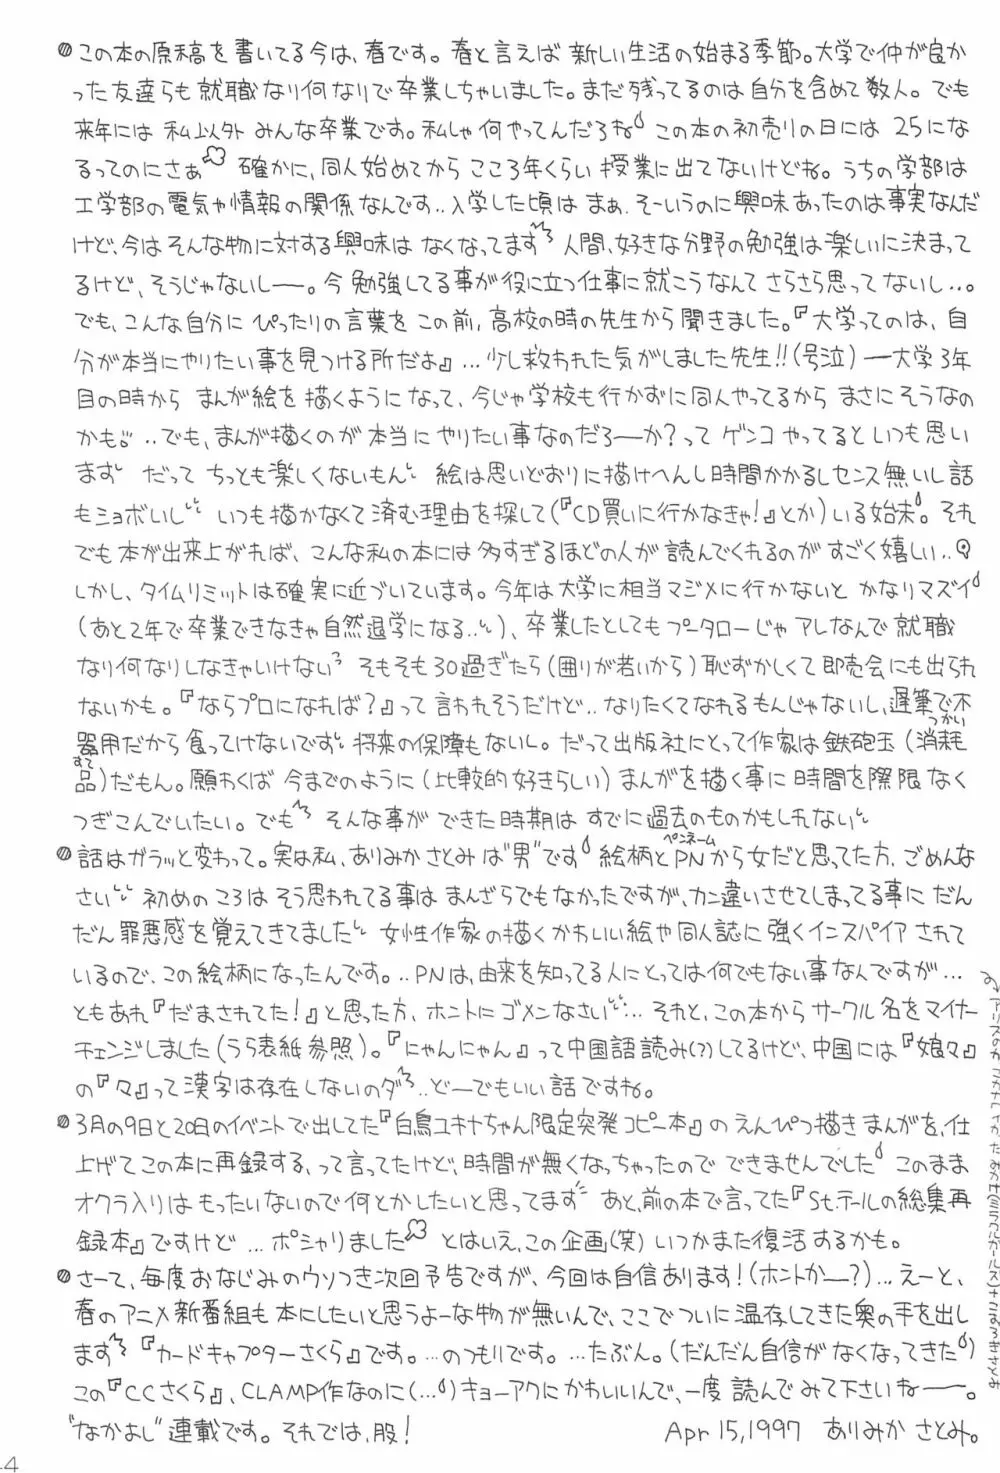 ●この本の原稿を書いてる今は、春です。春と言えば新しい生活の始まる季節。大学で仲が良か
った友達らも就職なり何なりで卒業しちゃいました。まだ残ってるのは自分を含めて数人。でも
来年には私以外みんな卒業です。私しゃ何やってんだろね この本の初売りの日には25にな
るってのにさぁ 確かに、同人始めてからここ3年くらい授業に出てないけどね。うちの学部は
工学部の電気や情報の関係なんです‥入学した頃はまぁ、そーいうのに興味あったのは事実なんだ
けど、今はそんな物に対する興味はなくなってます 人間、好きな分野の勉強は楽しいに決まって
るけど、そうじゃないしー。今勉強してる事が役に立つ仕事に就こうなんてさらさら思ってないし…。
でも、こんな自分にぴったりの言葉をこの前、高校の時の先生から聞きました。『大学ってのは、自
分が本当にやりたい事を見つける所だよ』…少し救われた気がしました先生!!(号泣)―大学3年
目の時からまんが絵を描くようになって、今じゃ学校も行かずに同人やってるからまさにそうなの
かも ‥でも、まんが描くのが本当にやりたい事なのだろーか?ってゲンコやってるといつも思い
ます だってちっとも楽しくないもん 絵は思いどおりに描けへんし時間かかるしセンス無いし話
もショボいし いつも描かなくて済む理由を探して(『CD買いに行かなきゃ!』とか)いる始末。それ
でも本が出来上がれば、こんな私の本には多すぎるほどの人が読んでくれるのがすごく嬉しい‥
しかし、タイムリミットは確実に近づいています。今年は大学に相当マジメに行かないとかなりマズイ
(あと2年で卒業できなきゃ自然退学になる‥)、卒業したとしてもプータローじゃアレなんで就職
なり何なりしなきゃいけない そもそも30過ぎたら(囲りが若いから)恥ずかしくて即売会にも出られ
ないかも。『ならプロになれば?』って言われそうだけど‥なりたくてなれるもんじゃないし、遅筆で不
器用だから食ってけないです 将来の保障もないし。だって出版社にとって作家は鉄砲玉(消耗
つかい
すて
品)だもん。願わくば今までのように(比較的好きらしい)まんがを描く事に時間を際限なく
つぎこんでいたい。でも そんな事ができた時期はすでに過去のものかもしれない
●話はガラッと変わって。実は私、ありみかさとみは“男”です 絵柄とPNから女だと思ってた方、ごめんな
ペンネーム
さい 初めのころはそう思われてる事はまんざらでもなかったですが、カン違いさせてしまってる事にだん
だん罪悪感を覚えてきてました 女性作家の描くかわいい絵や同人誌に強くインスパイアされて
いるので、この絵柄になったんです。‥PNは、由来を知ってる人にとっては何でもない事なんですが…
ともあれ『だまされてた!』と思った方、ホントにゴメンなさい… それと、この本からサークル名をマイナー
チェンジしました(うら表紙参照)。『にゃんにゃん』って中国語読み(?)してるけど、中国には『娘々』
の『々』って漢字は存在しないのダ ‥どーでもいい話ですね。
●3月の9日と20日のイベントで出してた『白鳥ユキナちゃん限定突発コピー本』のえんぴつ描きまんがを、仕
上げてこの本に再録する、って言ってたけど、時間が無くなっちゃったのでできませんでした このまま
オクラ入りはもったいないので何とかしたいと思ってます あと、前の本で言ってた『St.テールの総集再
録本』ですけど…ポシャりました とはいえ、この企画(笑)いつかまた復活するかも。
●さーて、毎度おなじみのウソつき次回予告ですが、今回は自信あります!(ホントかー?)…えーと、
春のアニメ新番組も本にしたいと思うよーな物が無いんで、ここでついに温存してきた奥の手を出し
ます 『カードキャプターさくら』です。…のつもりです。…たぶん。(だんだん自信がなくなってきた)
この『CCさくら』、CLAMP作なのに(…)キョーアクにかわいいんで、一度読んでみて下さいねー。
“なかよし”連載です。それでは、股!
Apr 15,1997 ありみかさとみ。